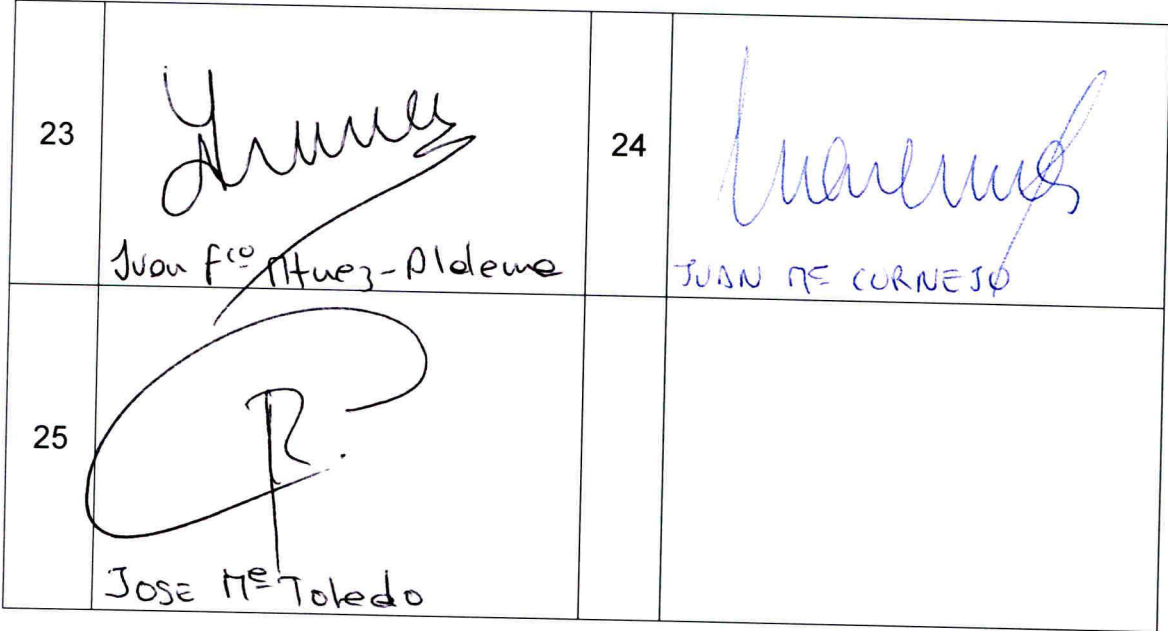 23
Juan Fco Mtnez-Aldama
24
JUAN Mª CORNEJO
25
JOSE Mª Toledo